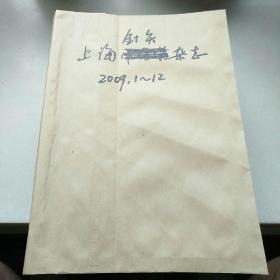 针灸
上海杂志
2009.1~12